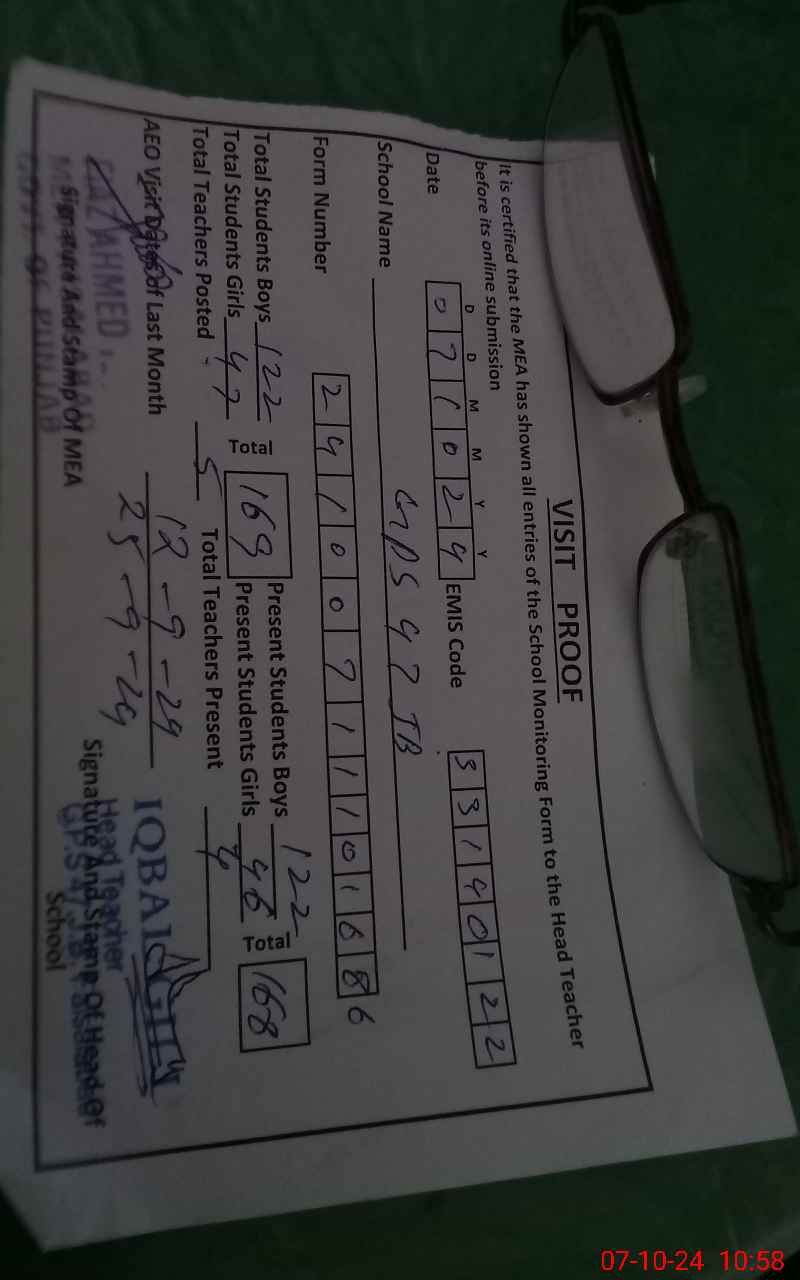 VISIT PROOF
It is certified that the MEA has shown all entries of the School Monitoring Form to the Head Teacher
before its online submission
D D M M Y Y
Date 0 7 1 0 2 4 EMIS Code 3 3 1 4 0 1 2 2
School Name GPS 47 JB
Form Number 2 4 1 0 0 7 1 1 1 0 1 6 8 6
Total Students Boys 122 Present Students Boys 122
Total Students Girls 47 Total 169 Present Students Girls 46 Total 168
Total Teachers Posted 5 Total Teachers Present 4
AEO Visit Dates of Last Month 12-9-24
25-9-24
AHMED
Signature And Stamp Of MEA
IQBAL
Head Teacher
Signature And Stamp Of Head Of
School
07-10-24 10:58